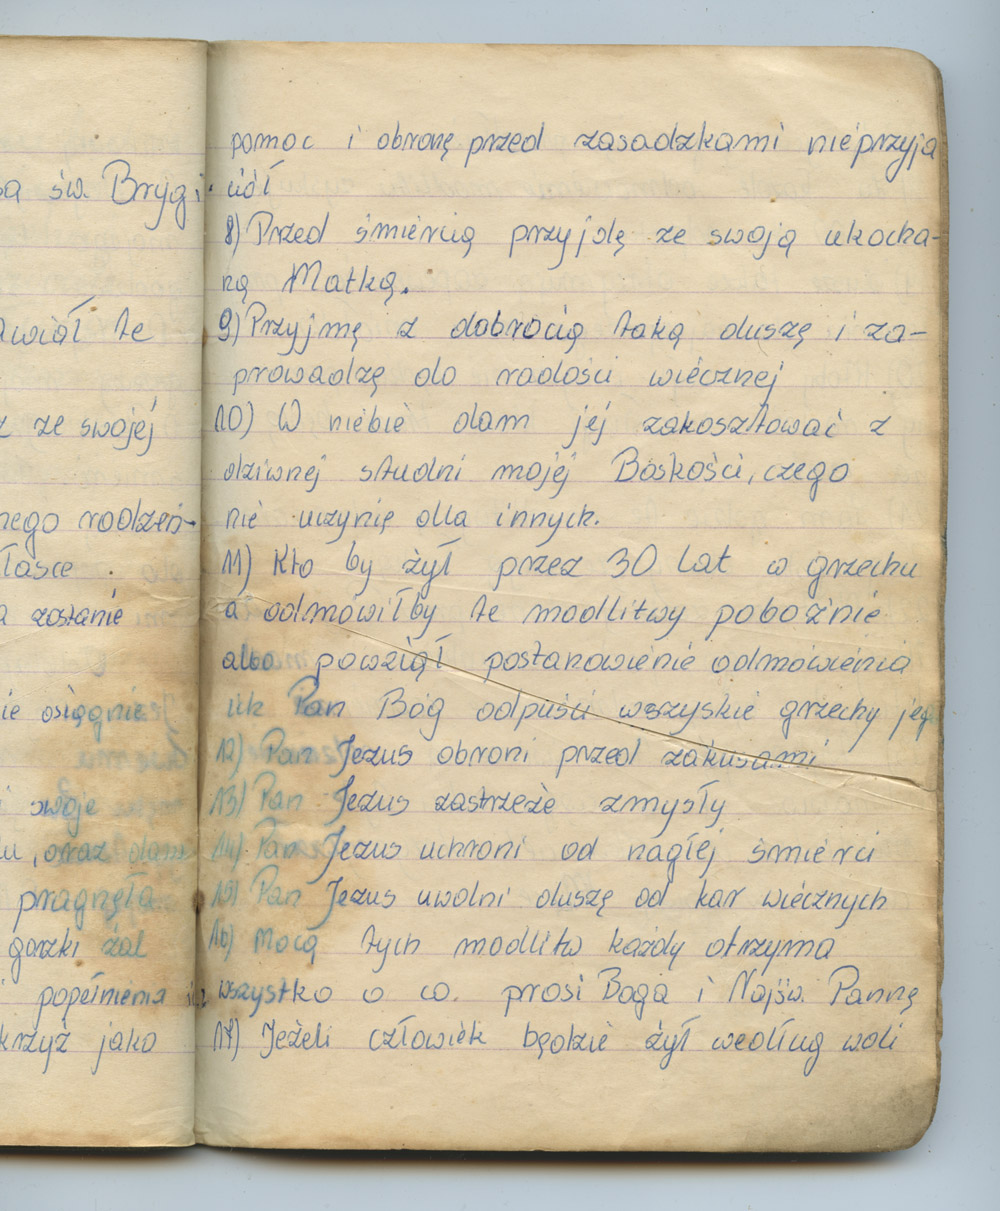 sa św. Brygi-
awiał te
z ze swojej
nego rodzeń-
łasce
a zostanie
ie osiągnie
i swoje
u, oraz dam
pragnęła
gorzki żal
i popełnienia ich
krzyż jako
pomoc i obronę przed zasadzkami nieprzyja
ciół
8) Przed śmiercią przyjdę ze swoją ukocha-
ną Matką.
9) Przyjmę z dobrocią taką duszę i za-
prowadzę do radości wiecznej
10) W niebie dam jej zakosztować z
dziwnej studni mojej Boskości, czego
nie uczynię dla innych.
11) Kto by żył przez 30 lat w grzechu
a odmowiłby te modlitwy pobożnie
albo powziął postanowienie odmówienia
ich Pan Bóg odpuści wszyskie grzechy jego
12) Pan Jezus obroni przed zakusami
13) Pan Jezus zastrzeże zmysły
14) Pan Jezus uchroni od nagłej śmierci
15) Pan Jezus uwolni duszę od kar wiecznych
16) Mocą tych modlitw każdy otrzyma
wszystko o co. prosi Boga i Najśw. Pannę
17) Jeżeli człowiek będzie żył według woli